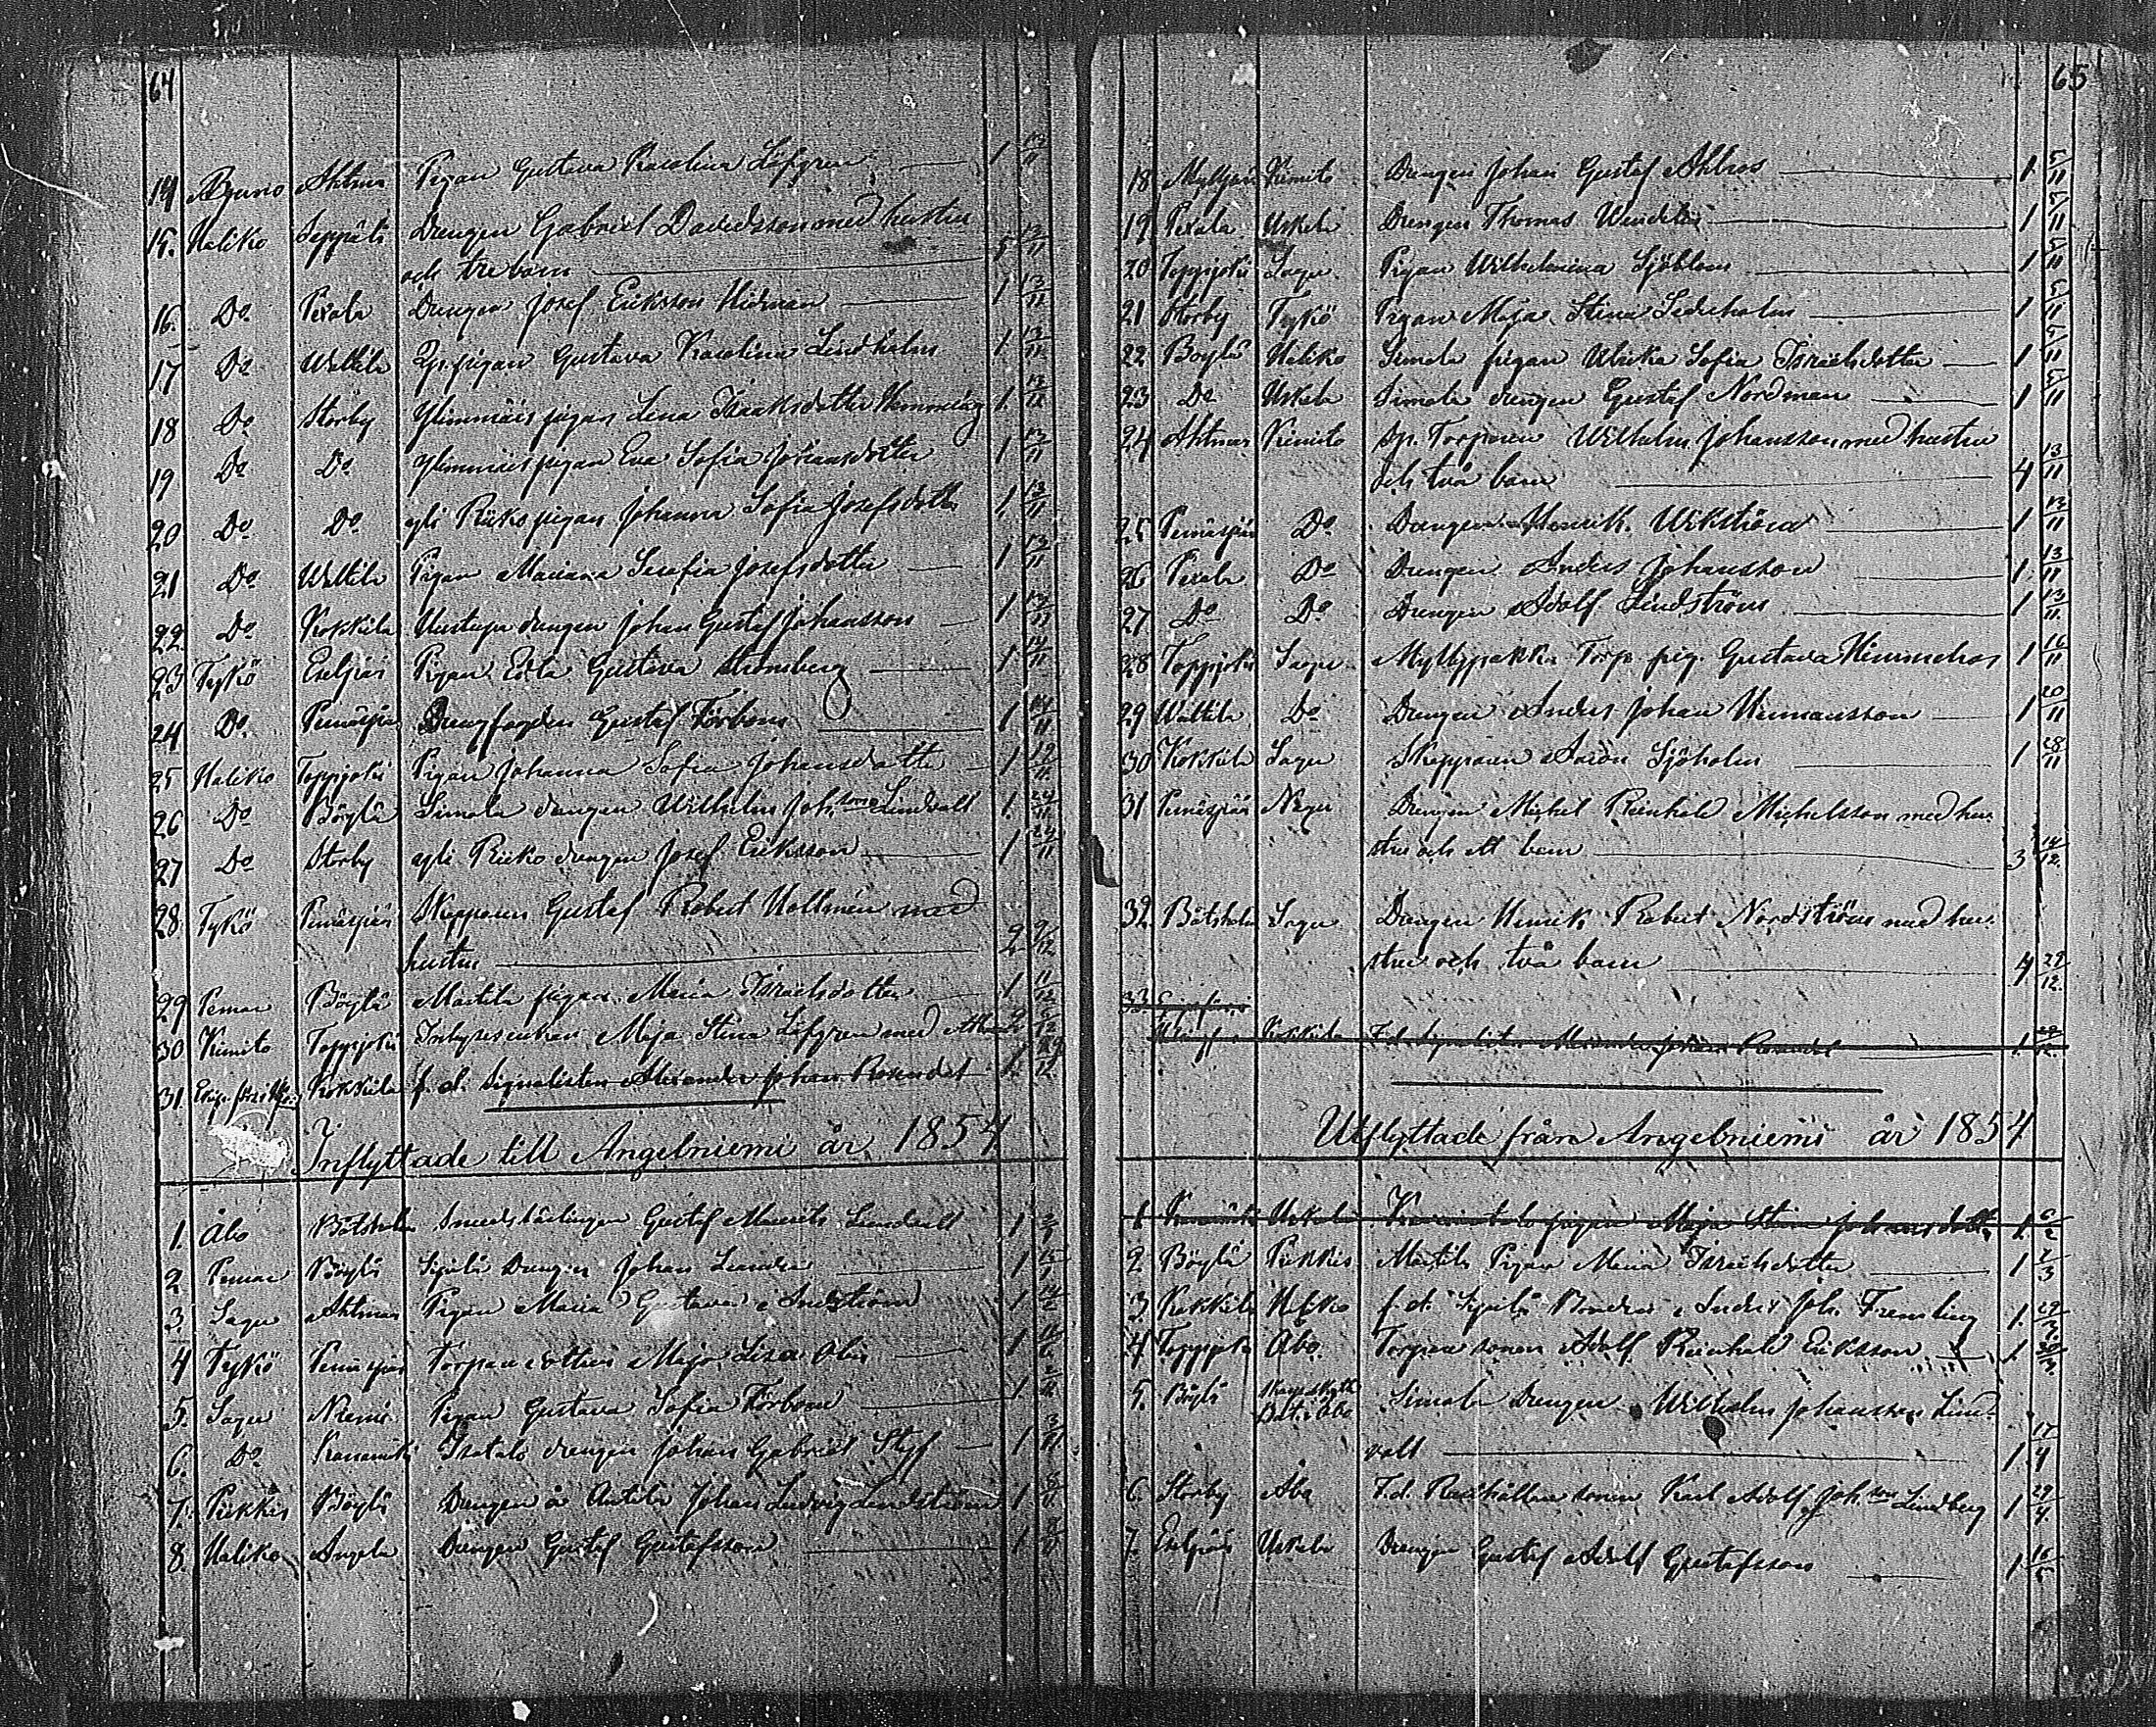 64
14 Bjerno Ahtmas Pigan Gustava Karolina Löfgren 1 13/11
15. Haliko Seppäls Drängen Gabriel Davidsson med hustru
och tre barn 5 13/11
16. Do Pexala Drängen Josef Eriksson Hidman 1 13/11
17 Do Waltila pigan Gustava Karolina Lindholm 1 13/11
18 Do Storby Ylimmäis pigan Lena Isaksdotter Hemming 1. 13/11
19 Do Do Ylimmäis pigan Eva Sofia Johansdotter 1 13/11
20 Do Do yli Riiko pigan Johanna Sofia Josefsdotter 1 13/11
21 Do Waltila Pigan Mariana Serafia Josefsdotter 1 13/11
22. Do Kokkila Uustupa drängen Johan Gustaf Johansson 1 13/11
23 Tykö Exeljäis Pigan Edla Gustava Strömberg 1 14/11
24 Do. Pemäsjäis Drengfogden Gustaf Förbom 1 14/11
25 Haliko Toppjoki Pigan Johanna Sofia Johansdotter 1 19/11
26 Do Böylä Simola drängen Wilhelm Joh.son Lindvall 1. 24/11
27 Do Storby yli Riiko drängen Josef Eriksson 1 24/11
28 Tykö Pemäsjäis Skepparen Gustaf Robert Holtmén med
hustru 2 9/12
29 Pemar Böylä Mattila pigan Maria Israelsdotter 1 11/12
30 Kimito Toppjoki Inhyses enkan Maja Stina Löfgren med 2
31. Kokkila f.d. Signalisten Alexander Johan Rosendal 1.
Inflyttade till Angelniemi år 1854
1. Åbo Båtsholm Smedslärlingen Gustaf Maurits Lindvall 1
2 Pemar Böylä Sipilä Drängen Johan Leander 1 15/1
3. Sagu Ahtmas Pigan Maria Gustava Lindström 1 14/2
4 Tykö Pemäsjäis Torpare dottren Maja Lisa 1
5. Sagu Niemis Pigan Gustava Sofia Förbom 1
6. Do Kanamäki Isotalo drängen Johan Gabriel Styf 1
7. Pikkis Böylä Drängen å Antila Johan Ludvig Lindström 1
8. Haliko Angela Drängen Gustaf Gustafsson 1
65
18 Kimito Drängen Johan Gustaf Ahlros 1. 5/11
19. Pexala Uskela Drängen Thomas Wendelin 1 5/11
20 Toppjoki Sagu Pigan Wilhelmina Sjöblom 1 5/11
21 Storby Tykö Pigan Maja Stina Sederholm 1 5/11
22. Böylä Haliko Simola pigan Ulrika Sofia Israelsdotter 1 5/11
23 Do Uskela Simola drängen Gustaf Nordman 1 5/11
24 Ahtmas Kimito Torparen Wilhelm Johansson med hustru
och två barn 4 13/11
25 Pemäsjäis Do Drängen Henrik Wikström 1 13/11
26 Pexala Do Drengen Anders Johansson 1. 13/11
27 Do Do Drängen Adolf Lindström 1 13/11.
28 Toppjoki Sagu Myllypakka Torp. pig. Gustava Himmelros 1 16/11
29 Waltila Do Drängen Anders Johan Hermansson 1 20/11
30 Kokkila Sagu Skepparen Aron Sjöholm 1 28/11
31 Pemäsjäis Nagu Drängen Michel Reinhold Michelsson med hu-
stru och ett barn 3 14/12.
32. Båtsholm Sagu Drängen Henrik Robert Nordström med hu-
stru och två barn 4 22/12.
33.
Kokkila F.d. Signalisten Alexander Johan Rosendal 1.
Utflyttade från Angelniemi år 1854
1 Kanamäki Uskela pigan Maja Stina Johansdotter 1. 6/2
2 Böylä Pikkis Mattila Pigan Maria Israelsdotter 1 2/3
3. Kokkila Haliko f.d. Sipilä Bonden Anders Joh. Fremling 1. 29/3
4 Toppjoki Åbo Torpare sonen Adolf Reinhold Eriksson 1. 30/3.
5. Böylä Skarpskytte Bat. i Åbo Simola Drengen Wilhelm Johansson Lind-
vall 1. 17/4
6. Storby Åbo F.d. Rusthållare sonen Karl Adolf Joh.son Lindberg 1 29/4.
7. Exeljäis Uskela Drängen Gustaf Adolf Gustafsson 1. 16/5